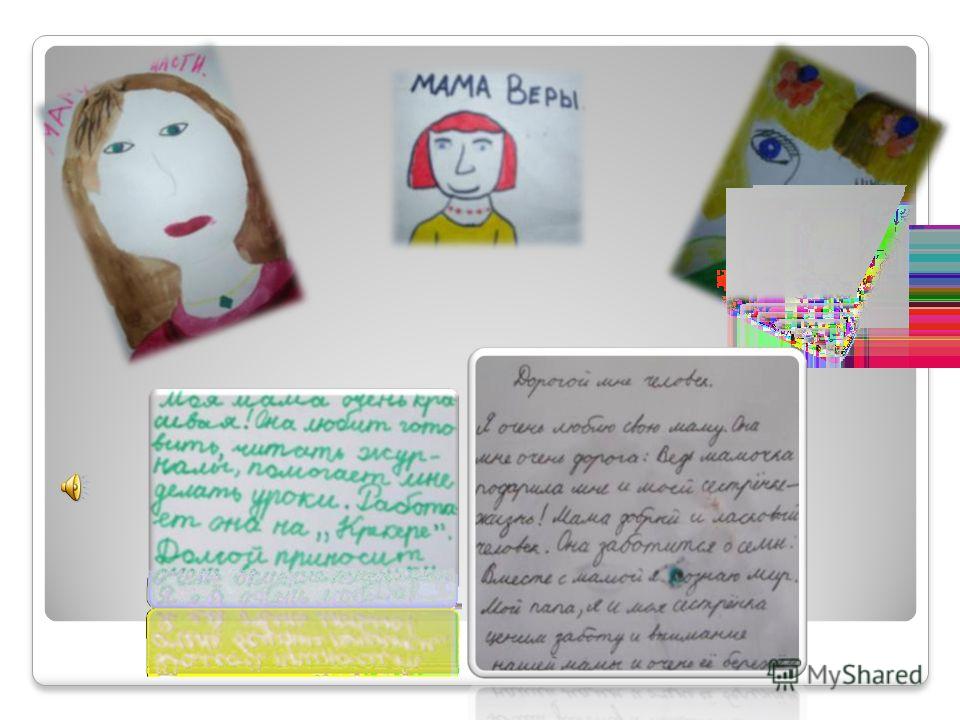 МАМА
НАСТИ.
МАМА ВЕРЫ
Моя мама очень кра
сивая! Она любит гото
вить, читать жур-
налы, помогает мне
делать уроки. Работа
ет она на „Крекере".
Долгой приносит
очень
Дорогой мне человек.
Я очень люблю свою маму. Она
мне очень дорога: Ведь мамочка
подарила мне и моей сестрёнке –
жизнь! Мама добрый и ласковый
человек. Она заботится о семье.
Вместе с мамой я познаю мир.
Мой папа, я и моя сестрёнка
ценим заботу и внимание
нашей мамы и очень её бережём
MyShared